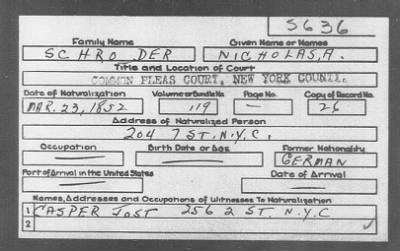 S636
Family Name Given Name or Names
SCHRODER NICHOLAS, A.
Title and Location of Court
COMMON PLEAS COURT, NEW YORK COUNTY.
Date of Naturalization Volume or Bundle No. Page No. Copy of Record No.
MAR. 23, 1852 119 — 26
Address of Naturalized Person
204 7 ST. N.Y.C.
Occupation Birth Date or Age Former Nationality
— — GERMAN
Port of Arrival in the United States Date of Arrival
— —
Names, Addresses and Occupations of Witnesses To Naturalization
1 CASPER JOST 256 2 ST N.Y.C
2